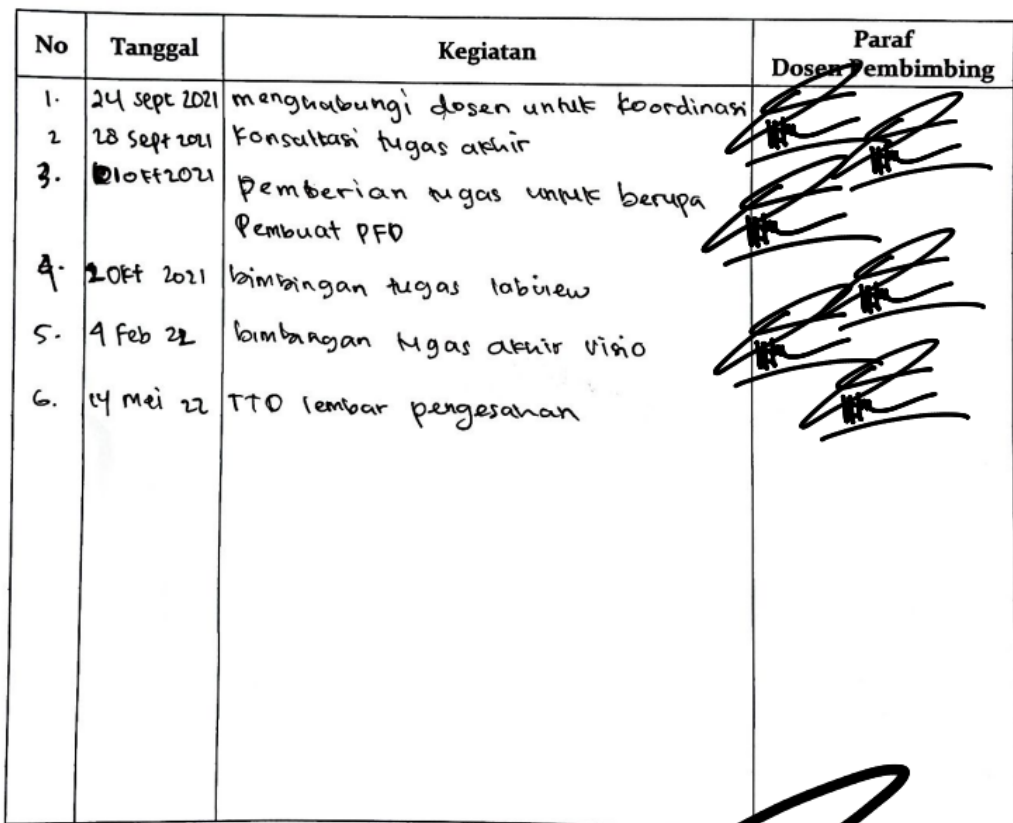 No Tanggal Kegiatan Paraf
Dosen Pembimbing
1. 24 Sept 2021 menghubungi dosen untuk koordinasi
2 28 Sept 2021 Konsultasi tugas akhir
3. 1 Okt 2021 Pemberian tugas untuk berupa
Pembuat PFD
4. 2 Okt 2021 bimbingan tugas labview
5. 4 Feb 22 bimbingan tugas akhir visio
6. 14 Mei 22 TTD lembar pengesahan